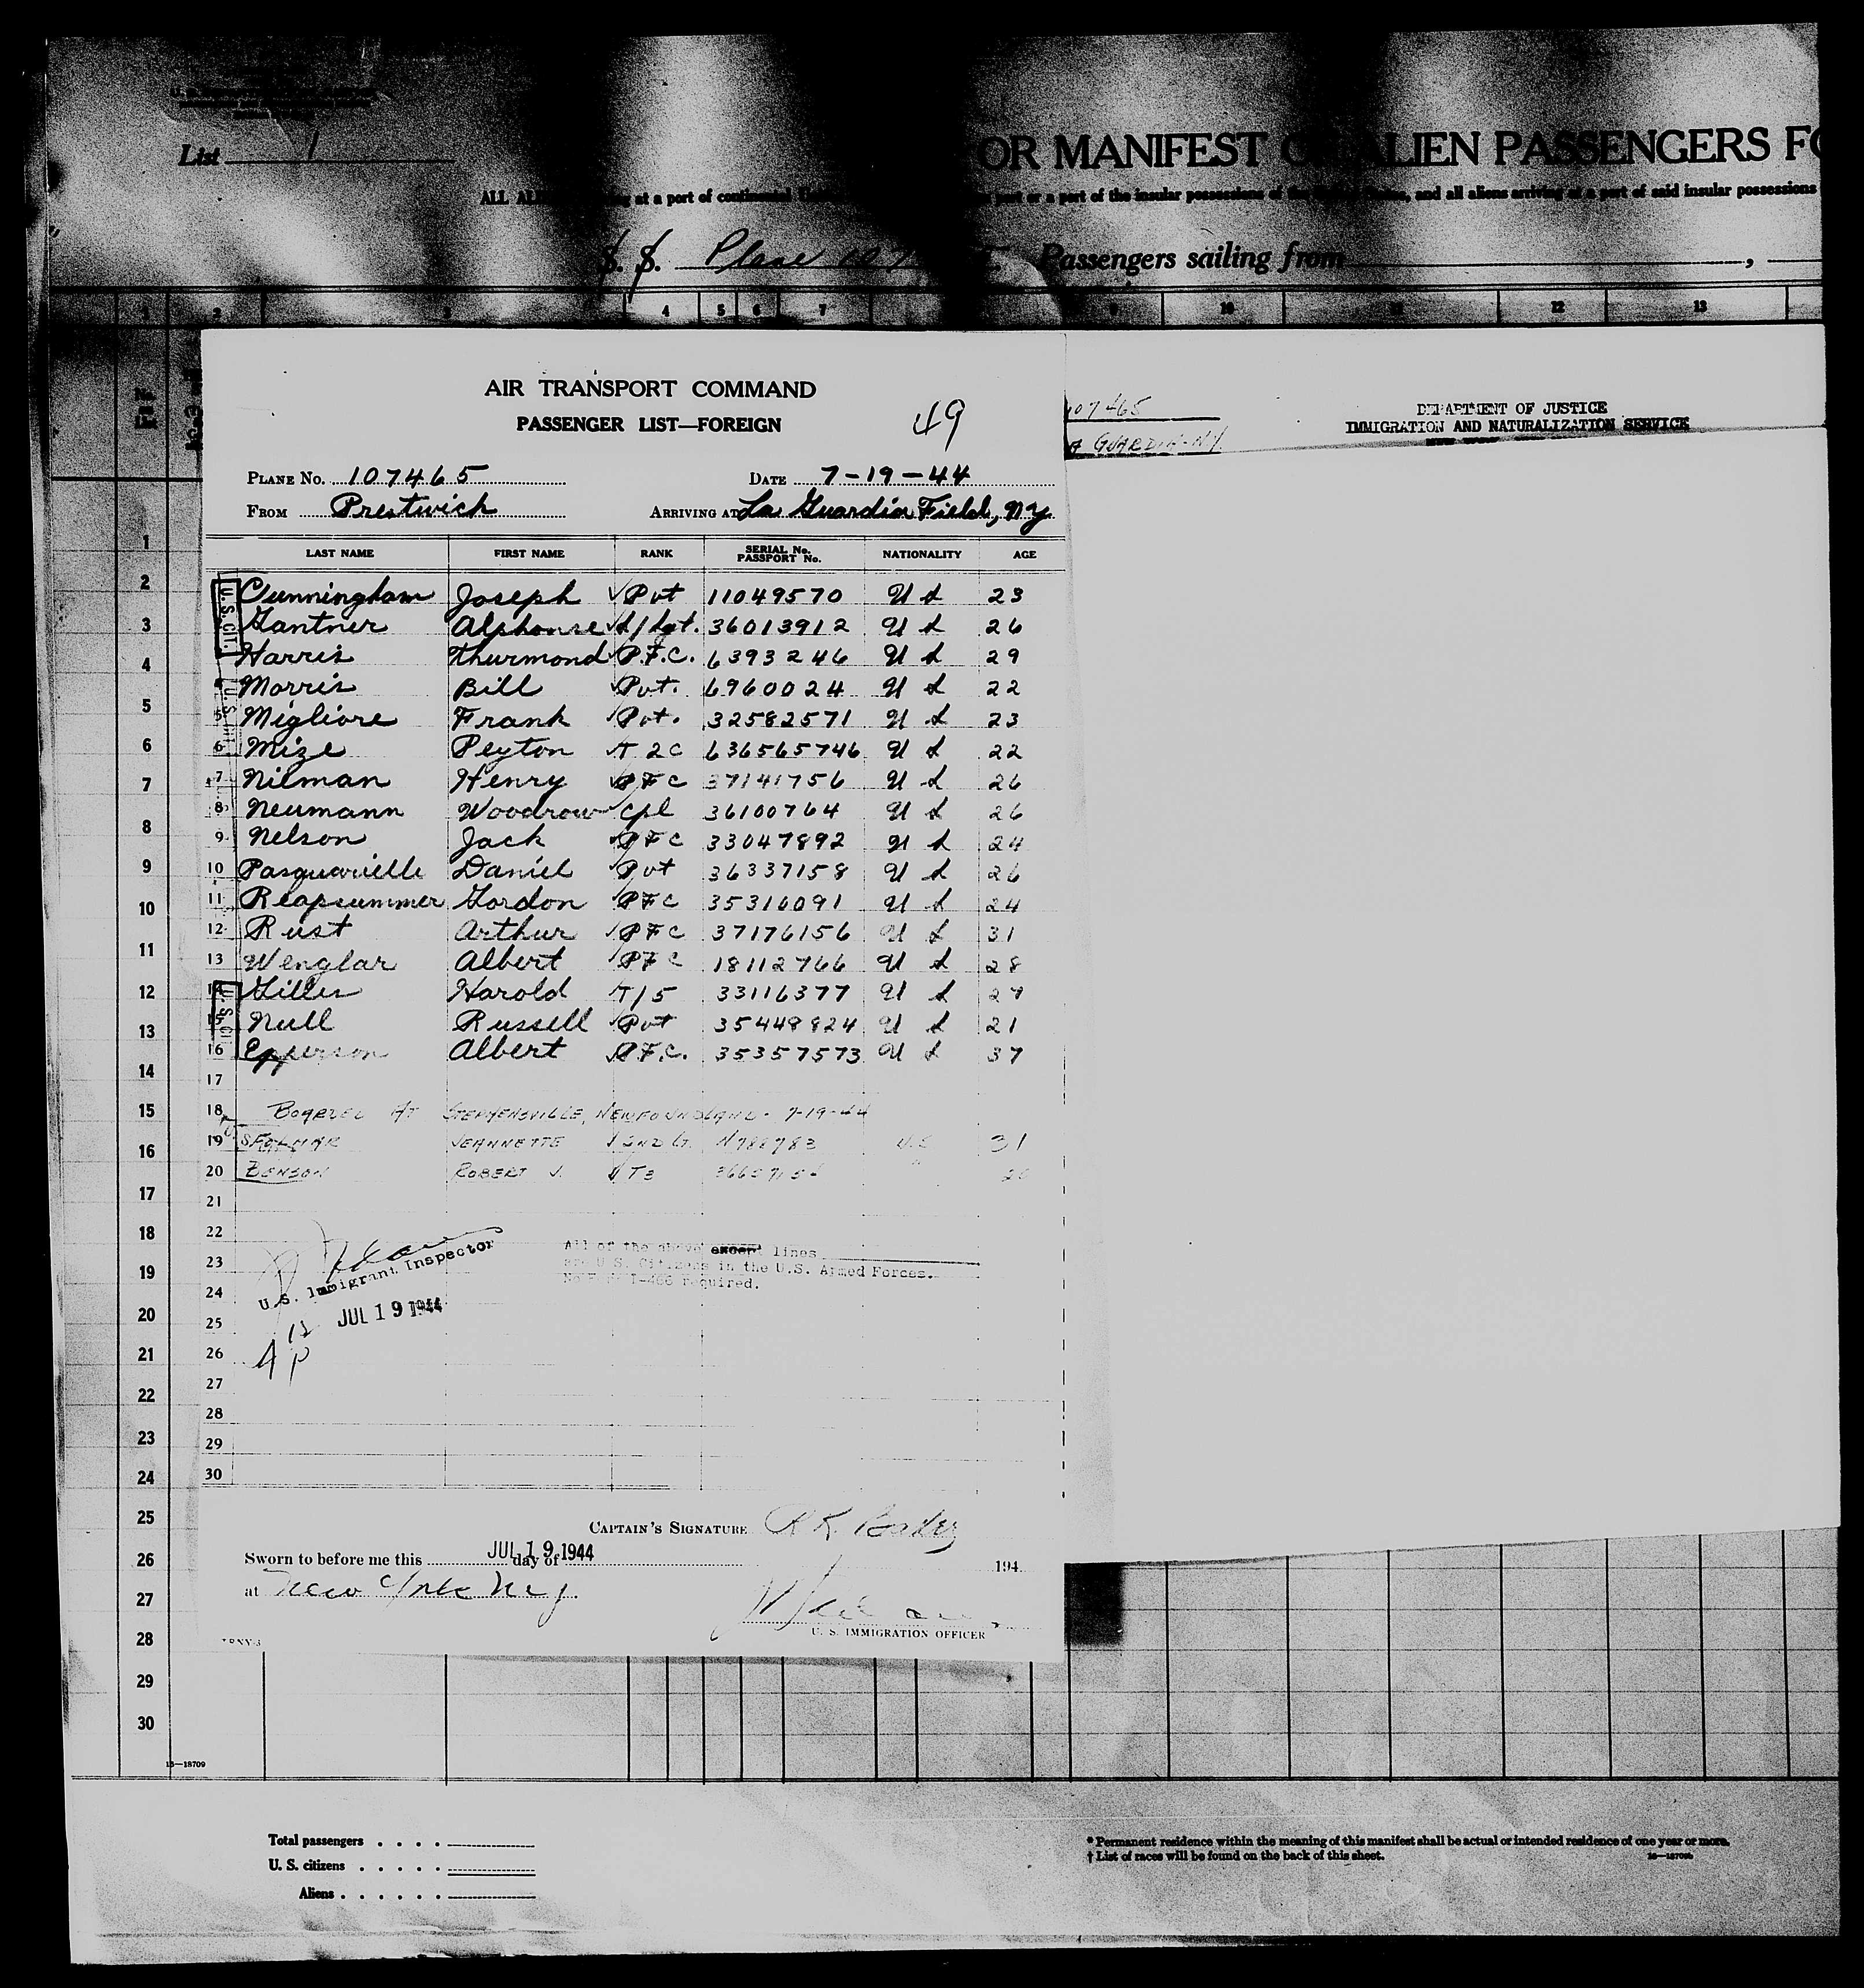 List 1
OR MANIFEST OF ALIEN PASSENGERS FO
ALL ALIENS at a port of continental
port or a port of the insular possessions of the United States, and all aliens arriving at a port of said insular possessions
S. S. Plane 107
Passengers sailing from ,
1 2 3 4 5 6 7 9 10 11 12 13
No. on List
AIR TRANSPORT COMMAND
PASSENGER LIST—FOREIGN
49
107465
GUARDIA-NY
DEPARTMENT OF JUSTICE
IMMIGRATION AND NATURALIZATION SERVICE
PLANE NO. 107465 DATE 7-19-44
FROM Prestwick ARRIVING AT La Guardia Field, NY
LAST NAME FIRST NAME RANK SERIAL No. PASSPORT No. NATIONALITY AGE
U.S. CIT.
Cunningham Joseph Pvt 11049570 US 23
Gantner Alphonse S/Sgt. 36013912 US 26
Harris Thurmond P.F.C. 6393246 US 29
Morris Bill Pvt. 6960024 US 22
5 Migliore Frank Pvt. 32582571 US 23
6 Mize Peyton T 2C 636565746 US 22
7 Nilman Henry PFC 37141756 US 26
8 Neumann Woodrow Cpl 36100764 US 26
9 Nelson Jack PFC 33047892 US 24
10 Pasquarielle Daniel Pvt 36337158 US 26
11 Reapsummer Gordon PFC 35316091 US 24
12 Rust Arthur PFC 37176156 US 31
13 Wenglar Albert PFC 18112766 US 28
14 Giller Harold T/5 33116377 US
15 Null Russell Pvt 35449824 US 21
16 Epperson Albert P.F.C. 35357573 US 37
17
18 BOARDED AT STEPHENSVILLE, NEWFOUNDLAND- 7-19-44
19 JEANNETTE 2ND LT. N788783 U.S. 31
20 BENSON ROBERT J. T3
21
22
23
24
25
26
27
28
29
30
U.S. Immigrant Inspector
JUL 19 1944
All of the above except lines
are U.S. Citizens in the U.S. Armed Forces.
No I-466 required.
CAPTAIN'S SIGNATURE R K. Baker
Sworn to before me this JUL 19 1944 day of 194
at New York NY.
U. S. IMMIGRATION OFFICER
1
2
3
4
5
6
7
8
9
10
11
12
13
14
15
16
17
18
19
20
21
22
23
24
25
26
27
28
29
30
16—18709
Total passengers . . . .
U. S. citizens . . . . .
Aliens . . . . . .
* Permanent residence within the meaning of this manifest shall be actual or intended residence of one year or more.
† List of races will be found on the back of this sheet.